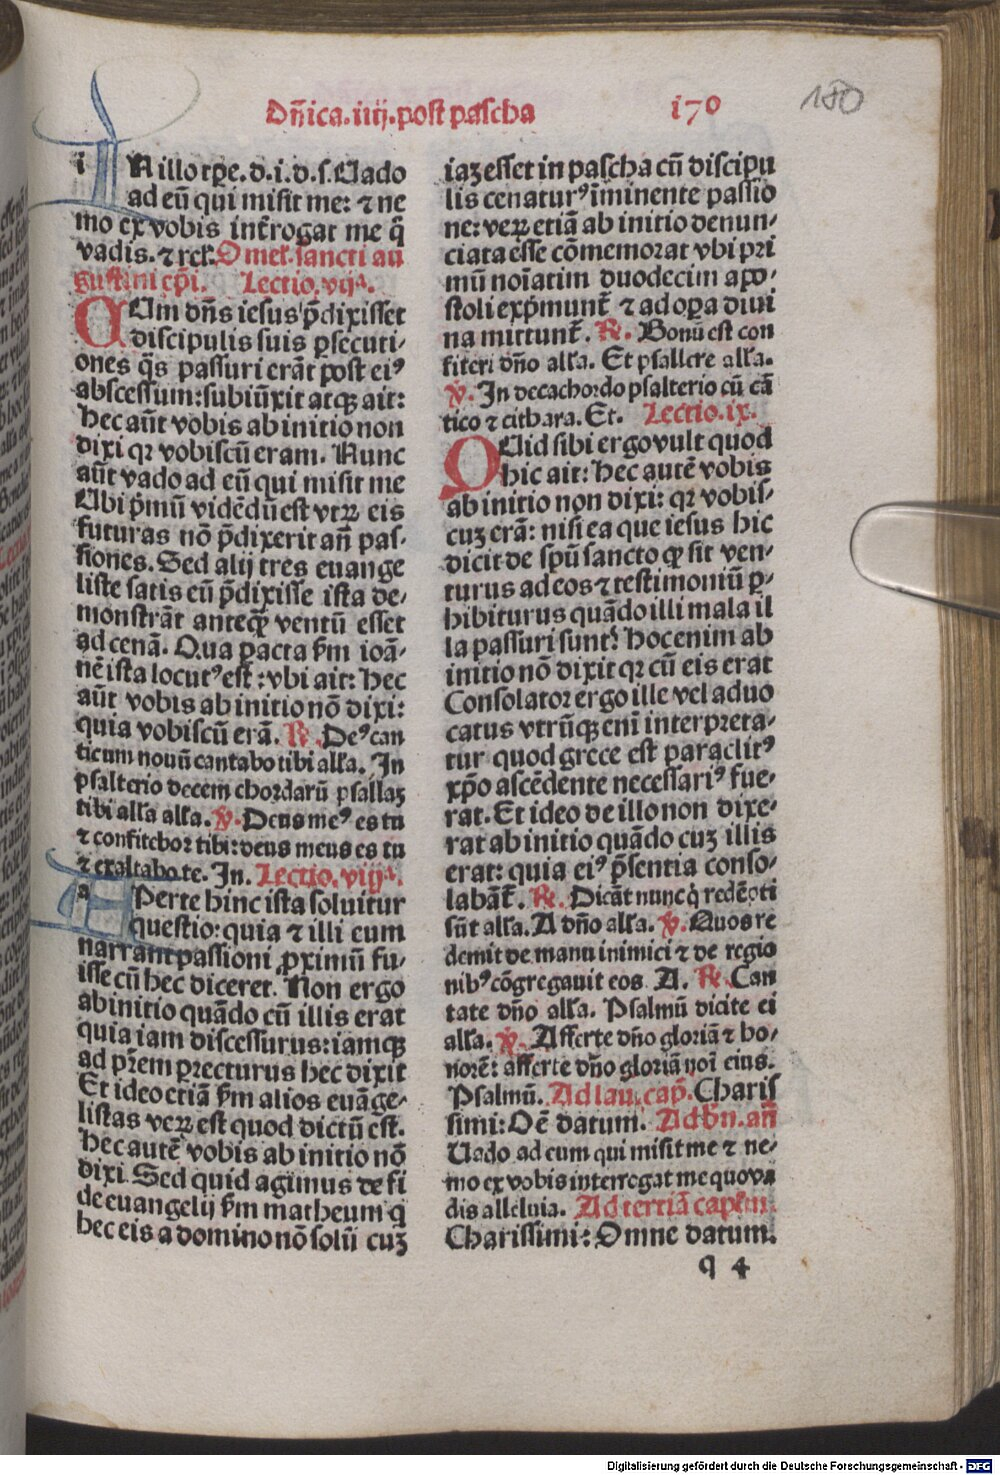 Dn̄ica. iiij. post pascha
170
180
iN illo tꝑe. d. i. d. s. Uado
ad eū qui misit me: ⁊ ne
mo ex vobis int̄rogat me q̄
vadis. ⁊ rel̄. Omel̄. sancti au
gustini ep̄i. Lectio. vijᵃ.
CUm dn̄s iesus p̄dixisset
discipulis suis ꝑsecuti-
ones q̄s passuri erāt post eiꝰ
abscessum: subiūxit atqꝫ ait:
Hec aūt vobis ab initio non
dixi qꝛ vobiscū eram. Nunc
aūt vado ad eū qui misit me
Ubi p̄mū vidēdū est vtꝝ eis
futuras nō p̄dixerit an̄ pas-
siones. Sed alij tres euange
liste satis eū p̄dixisse ista de-
monstrāt anteqꝫ ventū esset
ad cenā. Qua ꝑacta s̄m ioā-
nē ista locutꝰ est: vbi ait: Hec
aūt vobis ab initio nō dixi:
quia vobiscū erā. R̄. Deꝰ can
ticum nouū cantabo tibi alľa. In
psalterio decem chordarū psallaꝫ
tibi alľa alľa. v̄. Deus meꝰ es tu
⁊ confitebor tibi: deus meus es tu
⁊ exaltabo te. In. Lectio. viijᵃ.
aPerte hinc ista soluitur
questio: quia ⁊ illi eum
narrant passioni ꝓximū fu-
isse cū hec diceret. Non ergo
ab initio quādo cū illis erat
quia iam discessurus: iamqꝫ
ad pr̄em ꝑrecturus hec dixit
Et ideo etiā s̄m alios euāge-
listas veꝝ est quod dictū est.
Hec autē vobis ab initio nō
dixi. Sed quid agimus de fi
de euangelij s̄m matheum q̄
hec eis a domino nō solū cuꝫ
iaꝫ esset in pascha cū discipu
lis cenaturꝰ īminente passio
ne: veꝝ etiā ab initio denun-
ciata esse cōmemorat vbi pri
mū noīatim duodecim apo-
stoli exp̄munt̄ ⁊ ad oꝑa diui
na mittunt̄. R̄. Bonū est con
fiteri dn̄o alľa. Et psallere alľa.
v̄. In decachordo psalterio cū cā
tico ⁊ cithara. Et. Lectio. ix.
QUid sibi ergo vult quod
hic ait: hec autē vobis
ab initio non dixi: qꝛ vobis-
cuꝫ erā: nisi ea que iesus hic
dicit de spū sancto qꝫ sit ven-
turus ad eos ⁊ testimoniū ꝑ-
hibiturus quādo illi mala il
la passuri sunt: hoc enim ab
initio nō dixit qꝛ cū eis erat
Consolator ergo ille vel aduo
catus vtrūqꝫ enī interpreta-
tur quod grece est paraclitꝰ
xp̄o ascēdente necessariꝰ fue-
rat. Et ideo de illo non dixe-
rat ab initio quādo cuꝫ illis
erat: quia eiꝰ p̄sentia conso-
labāt̄. R̄. Dicāt nunc q̇ redēpti
sūt alľa. A dn̄o alľa. v̄. Quos re
demit de manu inimici ⁊ de regio
nibꝰ cōgregauit eos. A. R̄. Can
tate dn̄o alľa. Psalmū dicite ei
alľa. v̄. Afferte dn̄o gloriā ⁊ ho-
norē: afferte dn̄o gloriā noī eius.
Psalmū. Ad lau. cap̄. Charis
simi: Oē datum. Ad bn̄. an̄
Uado ad eum qui misit me ⁊ ne-
mo ex vobis interrogat me quo va
dis alleluia. Ad tertiā capľm.
Charissimi: Omne datum.
q 4
Digitalisierung gefördert durch die Deutsche Forschungsgemeinschaft - DFG